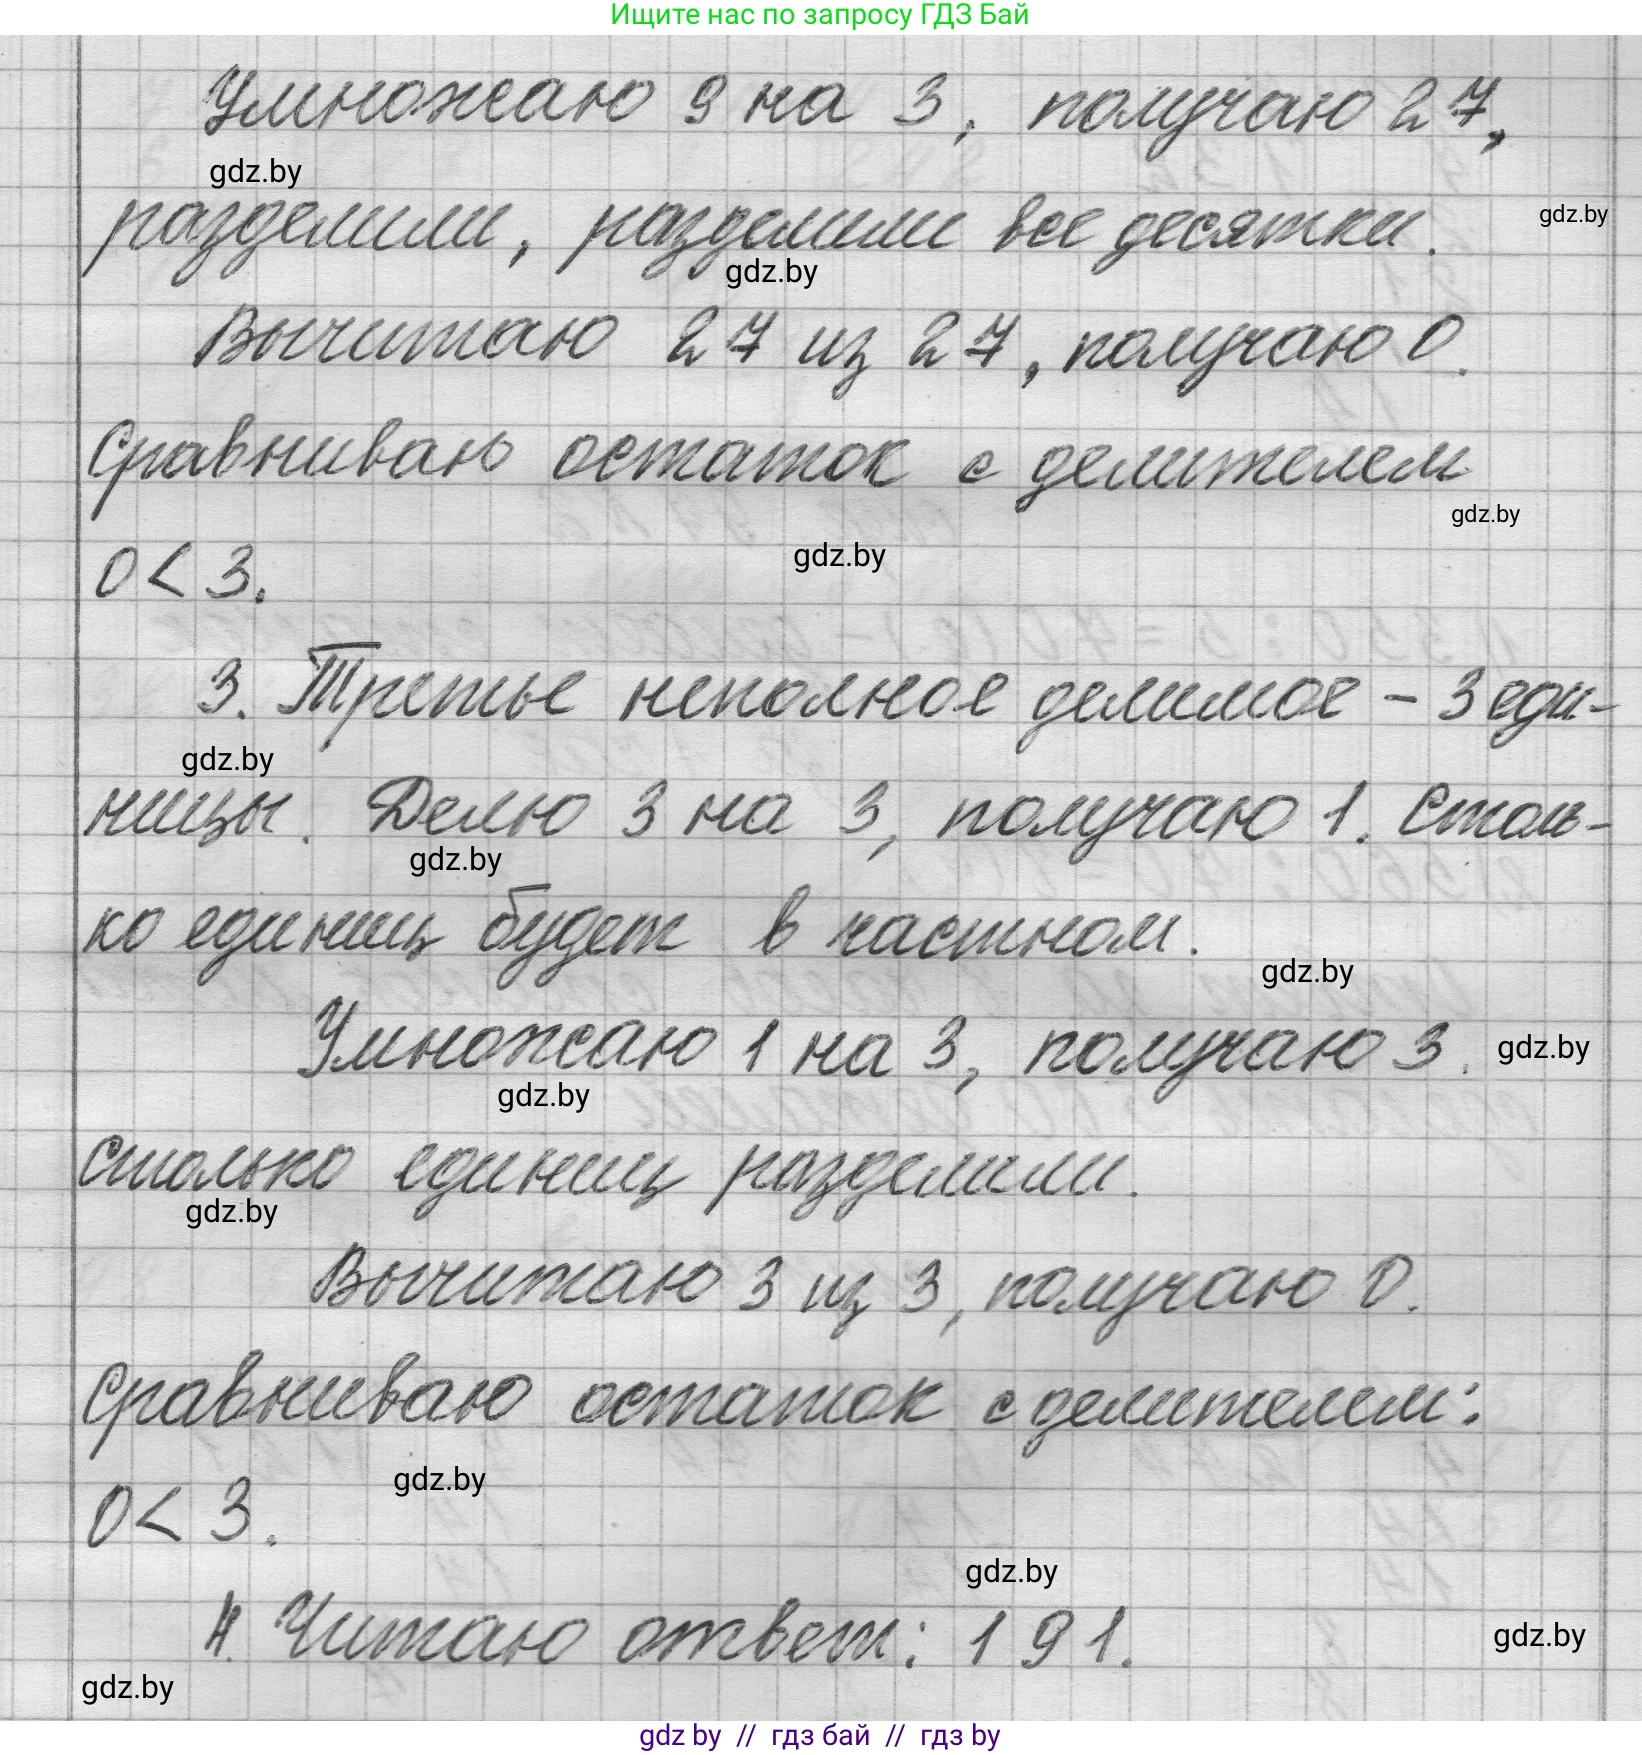 Ищите нас по запросу ГДЗ Бай
Умножаю 9 на 3, получаю 27,
gdz.by
разделили, разделили все десятки.
gdz.by
gdz.by
Вычитаю 27 из 27, получаю 0.
Сравниваю остаток с делителем
gdz.by
0 < 3.
gdz.by
3. Третье неполное делимое - 3 еди-
gdz.by
ницы. Делю 3 на 3, получаю 1. Столь-
gdz.by
ко единиц будет в частном.
gdz.by
Умножаю 1 на 3, получаю 3.
gdz.by
gdz.by
столько единиц разделили.
gdz.by
Вычитаю 3 из 3, получаю 0.
Сравниваю остаток с делителем:
gdz.by
0 < 3.
gdz.by
4. Читаю ответ: 191.
gdz.by
gdz.by
gdz by // гдз бай // гдз by